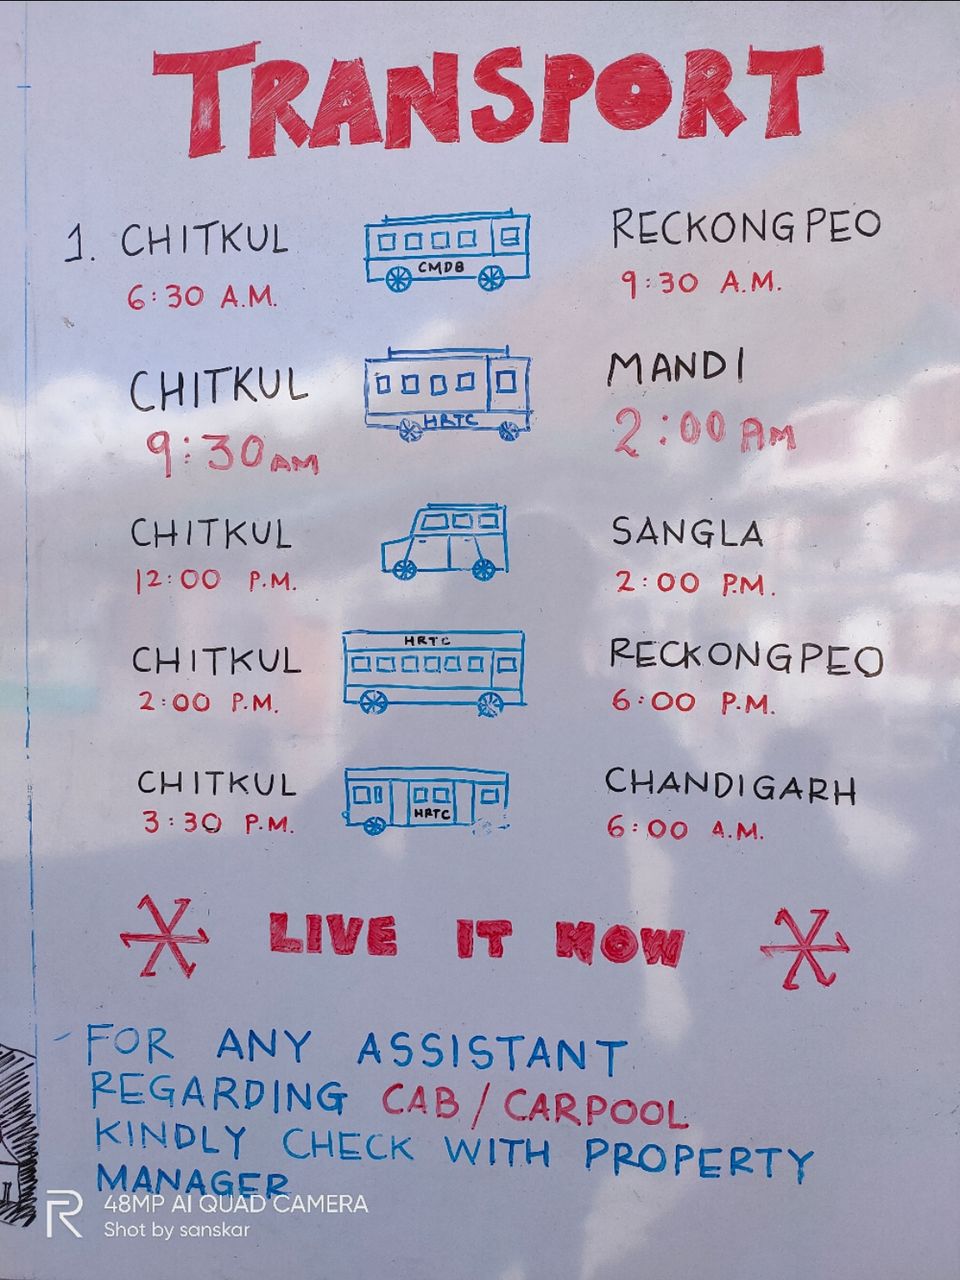 TRANSPORT
1. CHITKUL CMDB RECKONGPEO
6:30 A.M. 9:30 A.M.
CHITKUL HRTC MANDI
9:30 AM 2:00 AM
CHITKUL SANGLA
12:00 P.M. 2:00 P.M.
CHITKUL HRTC RECKONGPEO
2:00 P.M. 6:00 P.M.
CHITKUL HRTC CHANDIGARH
3:30 P.M. 6:00 A.M.
LIVE IT NOW
FOR ANY ASSISTANT
REGARDING CAB / CARPOOL
KINDLY CHECK WITH PROPERTY
MANAGER
48MP AI QUAD CAMERA
Shot by sanskar